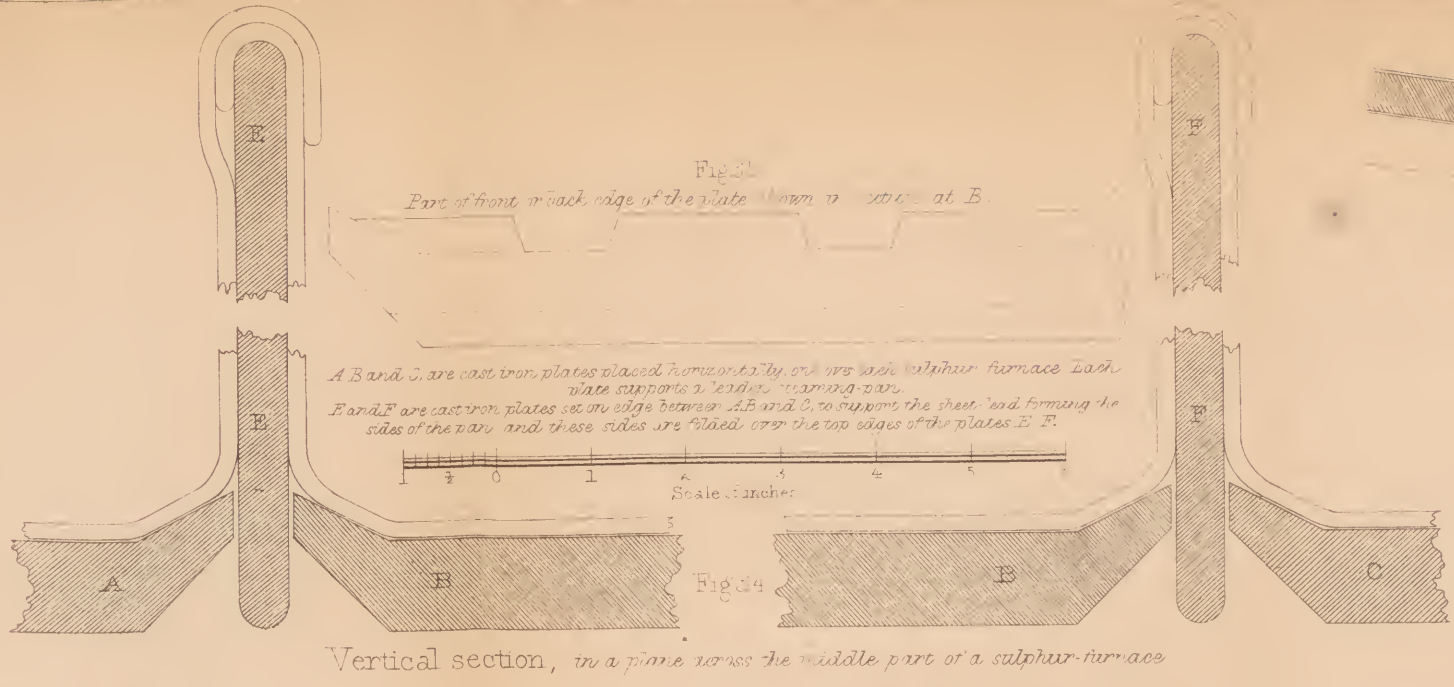 E
F
Part of front or back edge of the plate shown in at B.
A B and C, are cast iron plates placed horizontally, one over each sulphur furnace Each
plate supports a leaden steaming-pan.
E and F are cast iron plates set on edge between A B and C, to support the sheet-lead forming the
sides of the pan and these sides are folded over the top edges of the plates E F.
E
F
1 ½ 0 1 2 3 4 5
Scale of inches
A
B
B
C
Vertical section, in a plane across the middle part of a sulphur-furnace